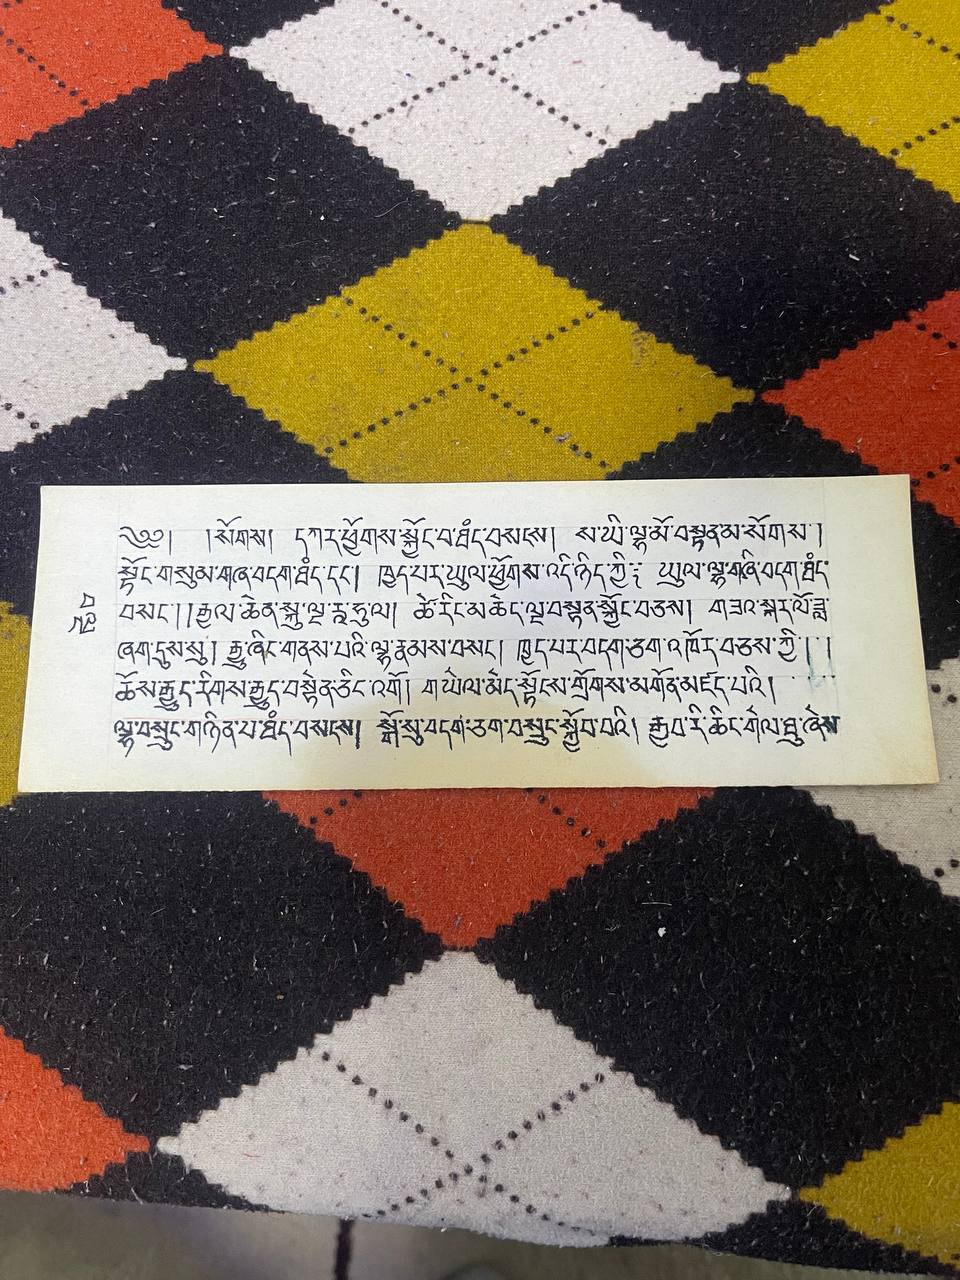 ༄༅། །སོགས། དཀར་ཕྱོགས་སྐྱོང་བ་ཐཾད་བསངས། ས་ཡི་ལྷ་མོ་བསྟནམ་སོགས །
སྟོང་གསུམ་གཞི་བདག་ཐཾད་དང་། ཁྱད་པར་ཡུལ་ཕྱོགས་འདི་ཉིད་ཀྱིཿ ཡུལ་ལྷ་གཞི་བདག་ཐཾད་
བསང་།།རྒྱལ་ཆེན་སྐུ་ལྔ་རཱ་ཧུལ། ཚེ་རིང་མཆེད་ལྔ་བསྟན་སྐྱོང་བཅས། གཟའ་སྐར་ལོ་ཟླ་
ཞག་དུསསུ། རྒྱུ་ཞིང་གནས་པའི་ལྷ་རྣམས་བསང་། ཁྱད་པར་བདག་ཅག་འཁོར་བཅས་ཀྱི། །
ཆོས་རྒྱུད་རིགས་རྒྱུད་བསྟེན་ཅིང་འགོ། གཡེལ་མེད་སྟོངས་གྲོགས་མགོན་མཛོད་པའི།
ལྷ་བསྲུང་གཉིན་པ་ཐཾད་བསངས། སྒོ་སུ་བདག་ཅག་བསྲུང་སྐྱོབ་པའི། རྒྱབ་རི་ཆིང་གེལ་ཐུ་ཞེས